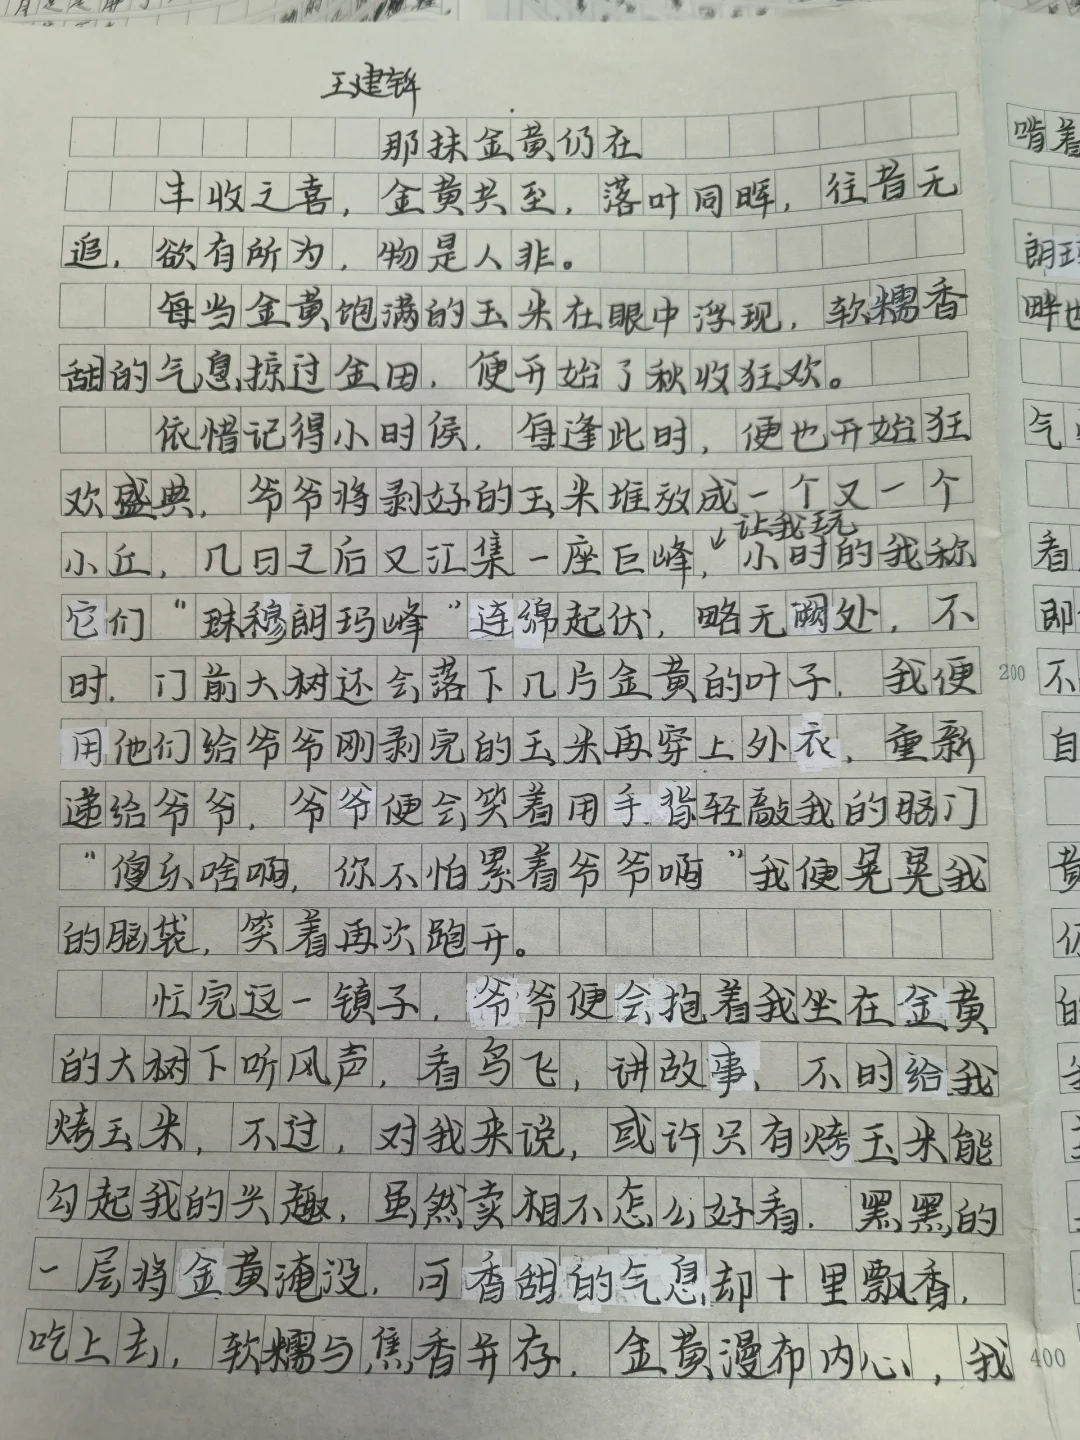 王建锌
那抹金黄仍在
丰收之喜，金黄共至，落叶同晖，往昔无
追，欲有所为，物是人非。
每当金黄饱满的玉米在眼中浮现，软糯香
甜的气息掠过金田，便开始了秋收狂欢。
依惜记得小时侯，每逢此时，便也开始狂
欢盛典，爷爷将剥好的玉米堆放成一个又一个
让我玩
小丘，几日之后又汇集一座巨峰，小时的我称
它们“珠穆朗玛峰”连绵起伏，略无阙处，不
时，门前大树还会落下几片金黄的叶子，我便
200
用他们给爷爷刚剥完的玉米再穿上外衣，重新
递给爷爷，爷爷便会笑着用手背轻敲我的脑门
“傻乐啥啊，你不怕累着爷爷啊”我便晃晃我
的脑袋，笑着再次跑开。
忙完这一镇子，爷爷便会抱着我坐在金黄
的大树下听风声，看鸟飞，讲故事，不时给我
烤玉米，不过，对我来说，或许只有烤玉米能
勾起我的兴趣，虽然卖相不怎么好看，黑黑的
一层将金黄淹没，可香甜的气息却十里飘香，
吃上去，软糯与焦香并存，金黄漫布内心，我
400
啃着
朗玛
畔也
气
看
即
不
自
黄
仍
的